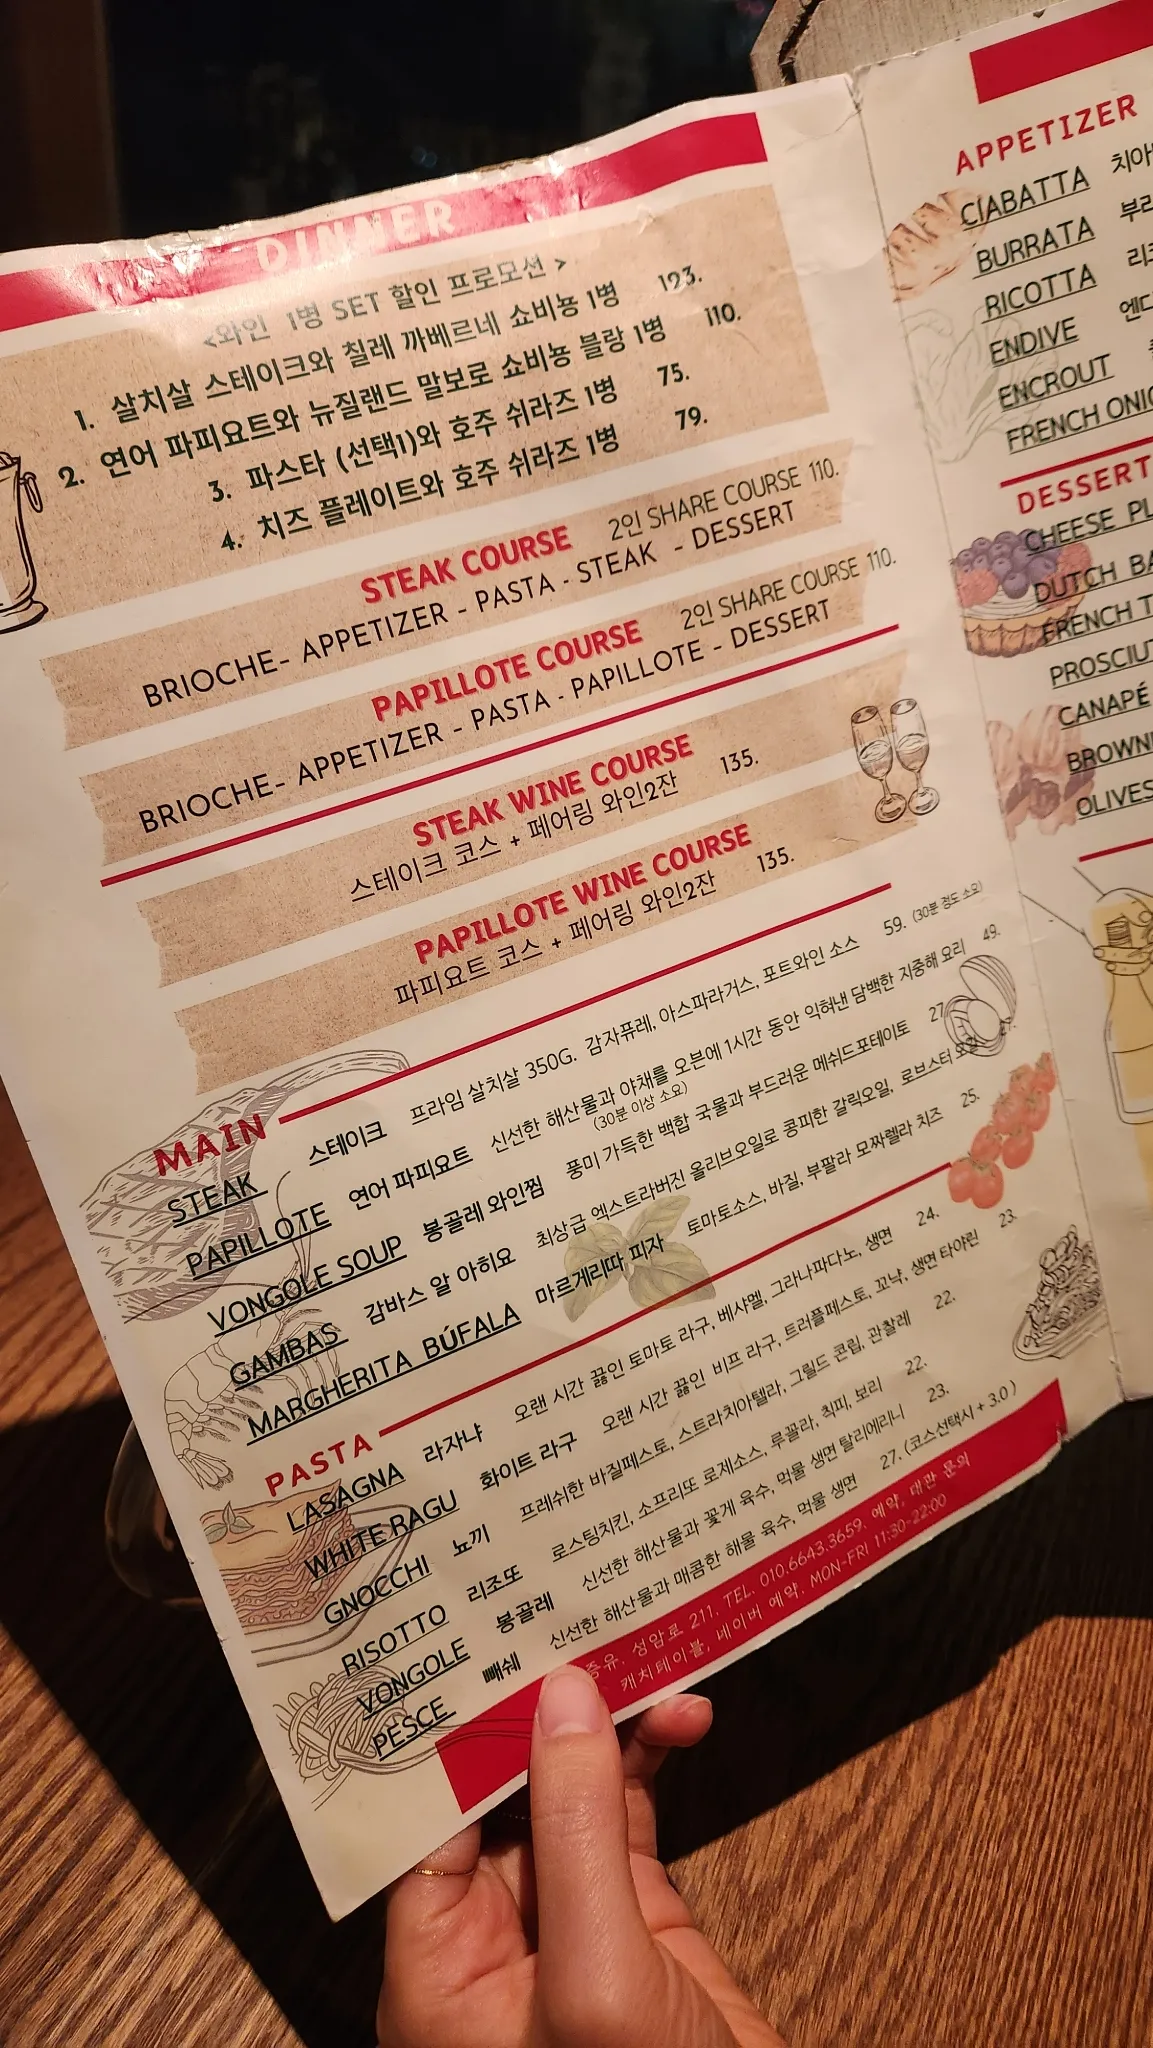 DINNER
<와인 1병 SET 할인 프로모션 >
1. 살치살 스테이크와 칠레 까베르네 쇼비뇽 1병 123.
2. 연어 파피요트와 뉴질랜드 말보로 쇼비뇽 블랑 1병 110.
3. 파스타 (선택1)와 호주 쉬라즈 1병 75.
4. 치즈 플레이트와 호주 쉬라즈 1병 79.
STEAK COURSE 2인 SHARE COURSE 110.
BRIOCHE- APPETIZER - PASTA - STEAK - DESSERT
PAPILLOTE COURSE 2인 SHARE COURSE 110.
BRIOCHE- APPETIZER - PASTA - PAPILLOTE - DESSERT
STEAK WINE COURSE
스테이크 코스 + 페어링 와인2잔 135.
PAPILLOTE WINE COURSE
파피요트 코스 + 페어링 와인2잔 135.
MAIN
STEAK 스테이크 프라임 살치살 350G. 감자퓨레, 아스파라거스, 포트와인 소스 59. (30분 정도 소요)
PAPILLOTE 연어 파피요트 신선한 해산물과 야채를 오븐에 1시간 동안 익혀낸 담백한 지중해 요리 49.
(30분 이상 소요)
VONGOLE SOUP 봉골레 와인찜 풍미 가득한 백합 국물과 부드러운 메쉬드포테이토 27
GAMBAS 감바스 알 아히요 최상급 엑스트라버진 올리브오일로 콩피한 갈릭오일, 로브스터 오일
MARGHERITA BÚFALA 마르게리따 피자 토마토소스, 바질, 부팔라 모짜렐라 치즈 25.
PASTA
LASAGNA 라자냐 오랜 시간 끓인 토마토 라구, 베샤멜, 그라나파다노, 생면 24.
WHITE RAGU 화이트 라구 오랜 시간 끓인 비프 라구, 트러플페스토, 꼬냑, 생면 타야린 23.
GNOCCHI 뇨끼 프레쉬한 바질페스토, 스트라치아텔라, 그릴드 콘립, 관찰레 22.
RISOTTO 리조또 로스팅치킨, 소프리또 로제소스, 루꼴라, 칙피, 보리 22.
VONGOLE 봉골레 신선한 해산물과 꽃게 육수, 먹물 생면 탈리에리니 23.
PESCE 빼쉐 신선한 해산물과 매콤한 해물 육수, 먹물 생면 27. (코스선택시 + 3.0)
증유. 성암로 211. TEL. 010.6643.3659. 예약, 대관 문의
캐치테이블, 네이버 예약. MON-FRI 11:30-22:00
APPETIZER
CIABATTA 치아
BURRATA 부라
RICOTTA 리
ENDIVE 엔
ENCROUT
FRENCH ONI
DESSERT
CHEESE PL
DUTCH BA
FRENCH T
PROSCIUT
CANAPÉ
BROWN
OLIVES